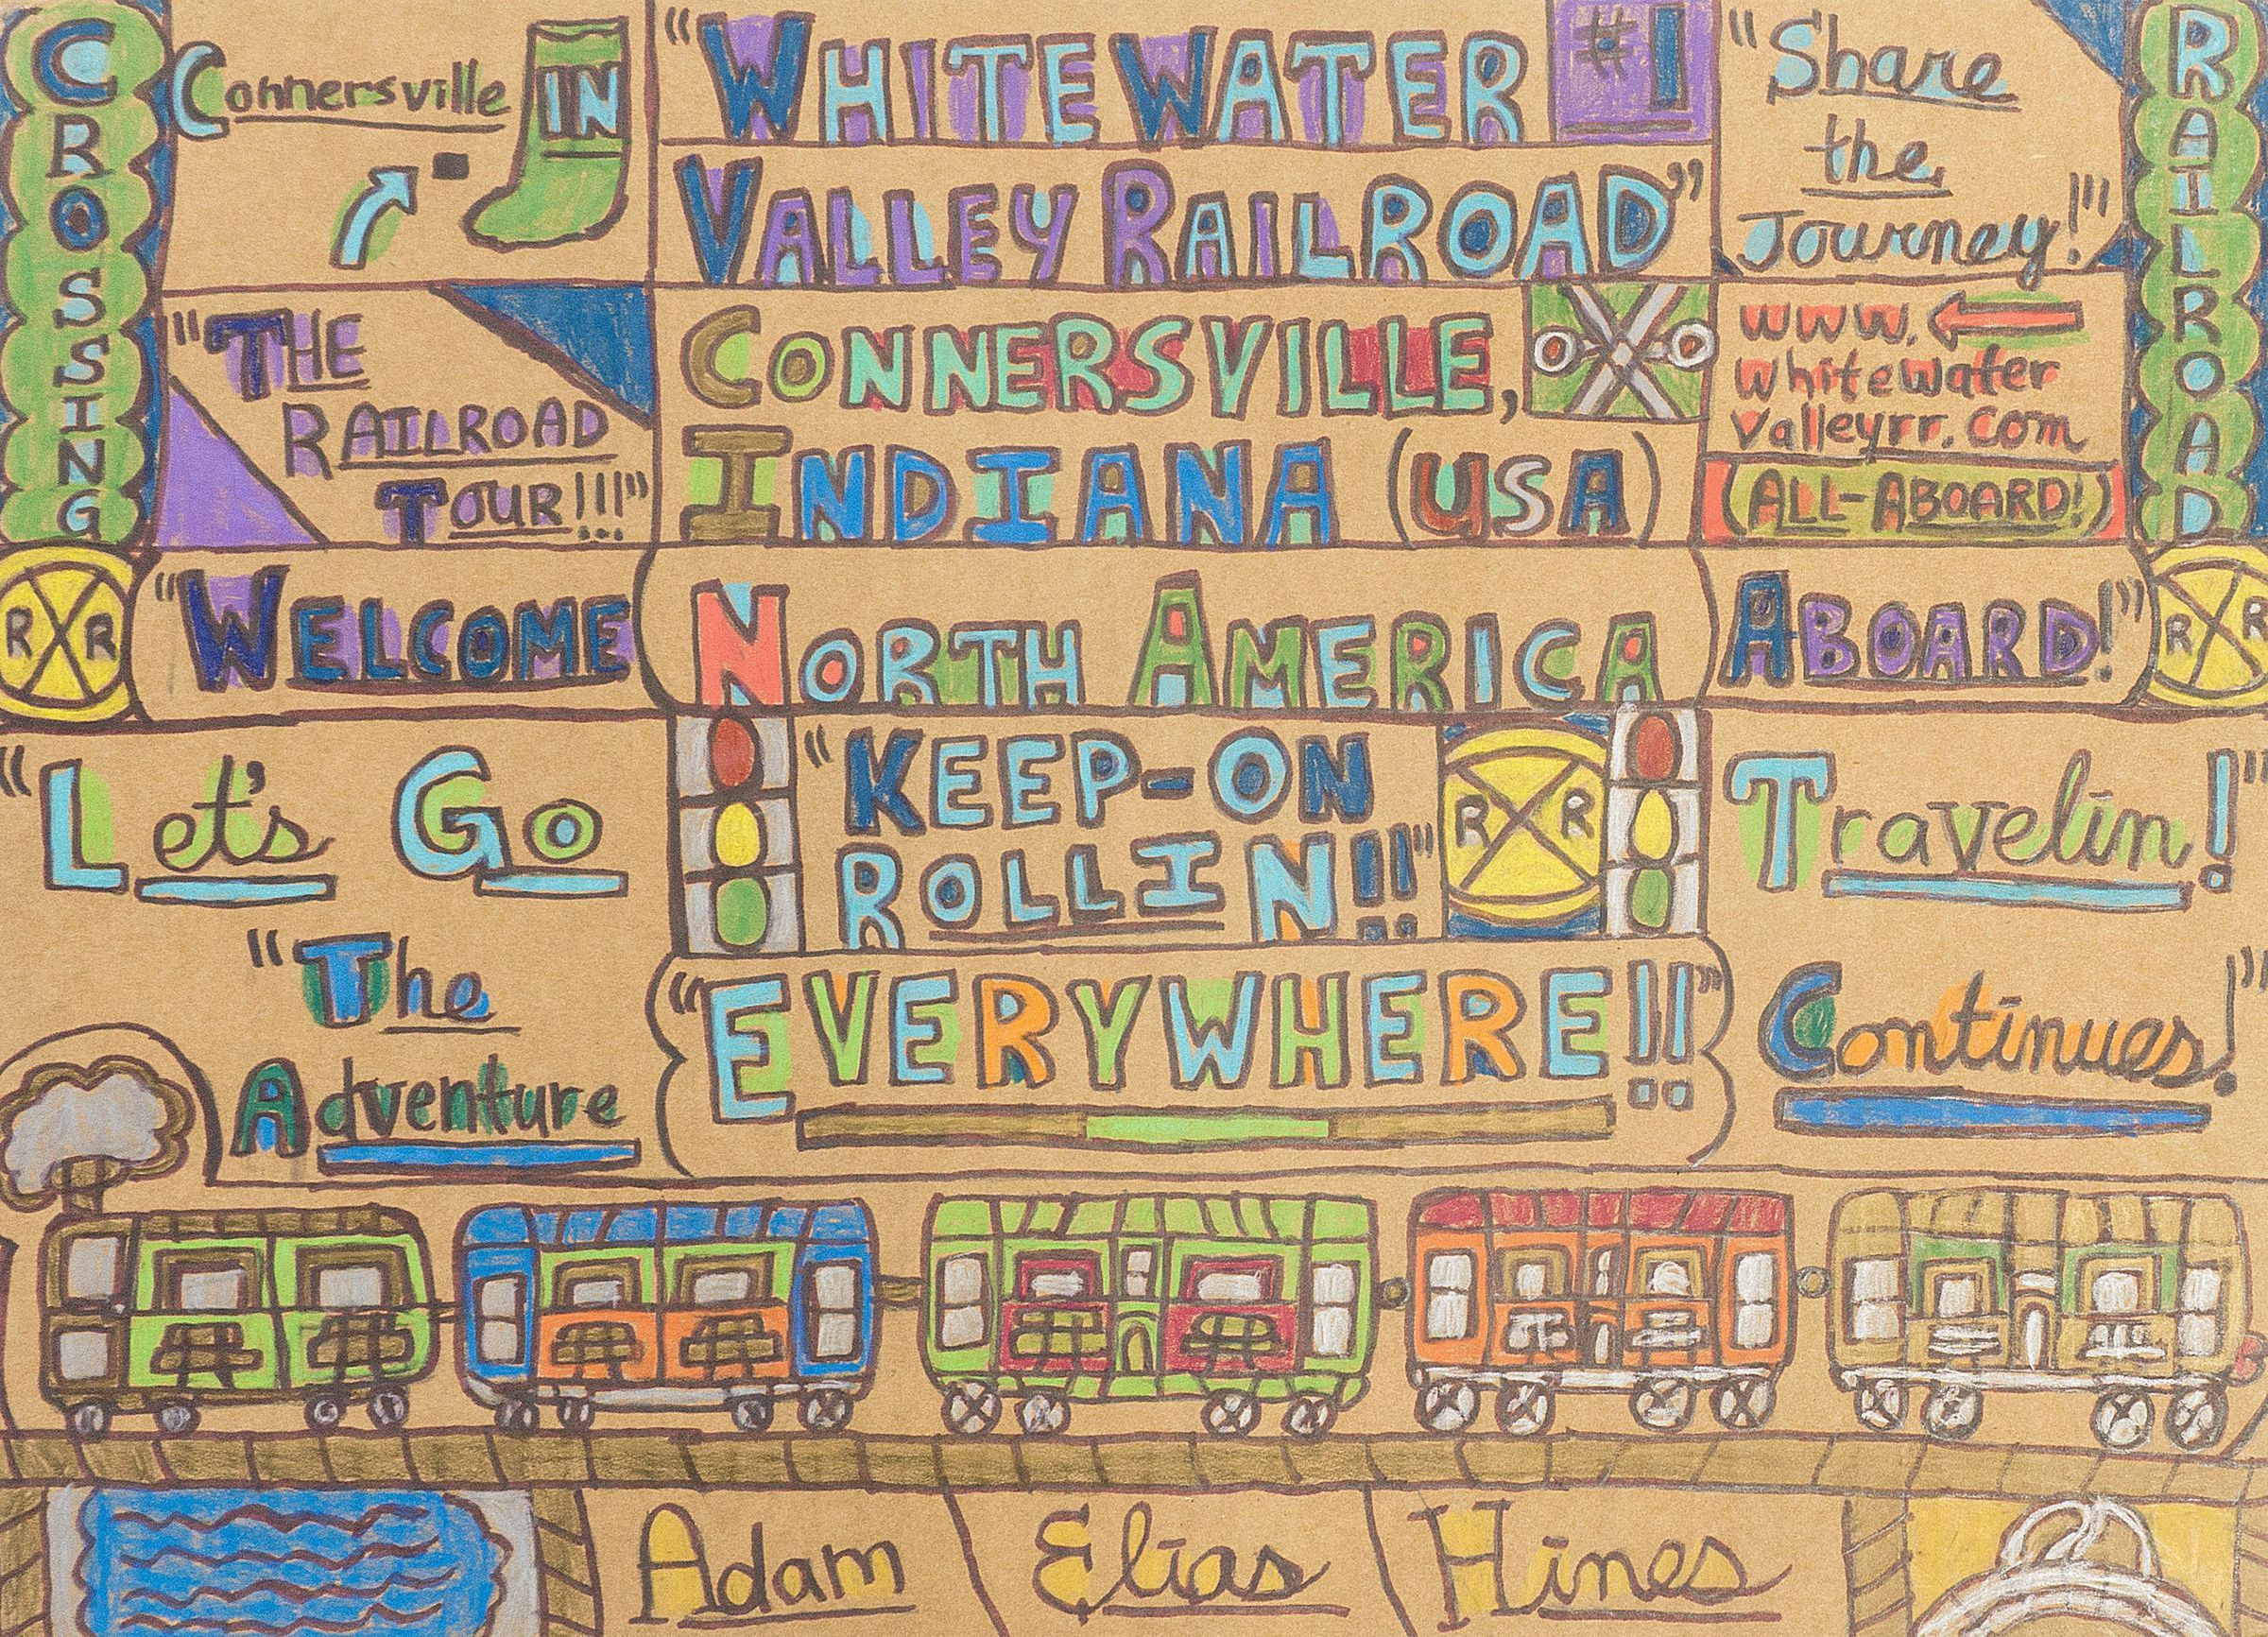 CROSSING
Connersville IN
"WHITEWATER #1
VALLEY RAILROAD"
"Share
the
Journey!!!"
RAILROAD
"THE
RAILROAD
TOUR!!!"
CONNERSVILLE,
INDIANA (USA)
www.
whitewater
valleyrr.com
(ALL-ABOARD!)
RXR
"WELCOME
NORTH AMERICA
ABOARD!"
RXR
"Let's Go
"KEEP-ON
ROLLIN!!"
RXR
Travelin!"
"The
Adventure
"EVERYWHERE!!"
Continues!"
Adam Elias Hines